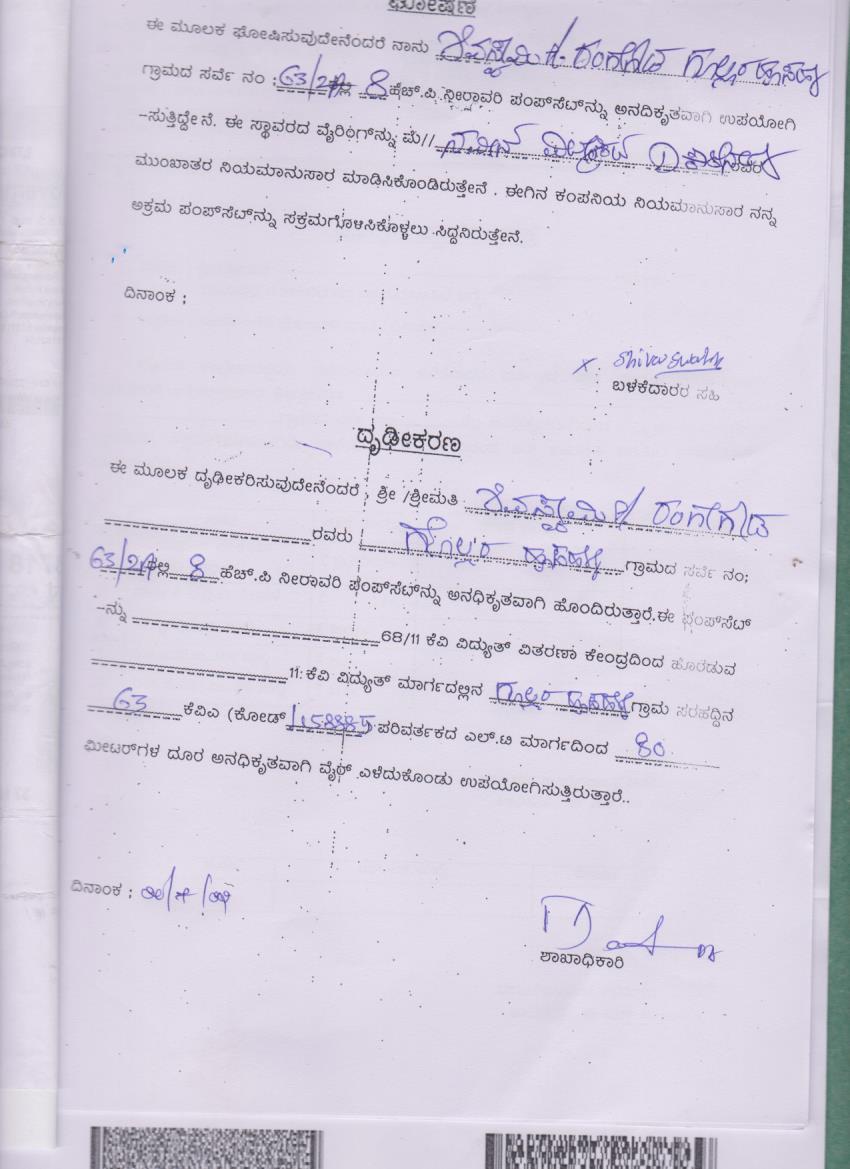 ಘೋಷಣೆ
ಈ ಮೂಲಕ ಘೋಷಿಸುವುದೇನೆಂದರೆ ನಾನು ಶಿವಸ್ವಾಮಿ
ಗ್ರಾಮದ ಸರ್ವೆ ನಂ : 63/2 ರಲ್ಲಿ 8 ಹೆಚ್.ಪಿ ನೀರಾವರಿ ಪಂಪ್‌ಸೆಟ್‌ನ್ನು ಅನದಿಕೃತವಾಗಿ ಉಪಯೋಗಿ
-ಸುತ್ತಿದ್ದೇನೆ. ಈ ಸ್ಥಾವರದ ವೈರಿಂಗ್‌ನ್ನು ಮೆ//
ಮುಂಖಾತರ ನಿಯಮಾನುಸಾರ ಮಾಡಿಸಿಕೊಂಡಿರುತ್ತೇನೆ . ಈಗಿನ ಕಂಪನಿಯ ನಿಯಮಾನುಸಾರ ನನ್ನ
ಅಕ್ರಮ ಪಂಪ್‌ಸೆಟ್‌ನ್ನು ಸಕ್ರಮಗೊಳಿಸಿಕೊಳ್ಳಲು ಸಿದ್ದನಿರುತ್ತೇನೆ.
ದಿನಾಂಕ ;
x Shivaswamy
ಬಳಕೆದಾರರ ಸಹಿ
ದೃಢೀಕರಣ
ಈ ಮೂಲಕ ದೃಢೀಕರಿಸುವುದೇನೆಂದರೆ , ಶ್ರೀ /ಶ್ರೀಮತಿ ಶಿವಸ್ವಾಮಿ
ರವರು ಗೊಲ್ಲರ ಗ್ರಾಮದ ಸರ್ವೆ ನಂ;
63/2 ರಲ್ಲಿ 8 ಹೆಚ್.ಪಿ ನೀರಾವರಿ ಪಂಪ್‌ಸೆಟ್‌ನ್ನು ಅನಧಿಕೃತವಾಗಿ ಹೊಂದಿರುತ್ತಾರೆ.ಈ ಪಂಪ್‌ಸೆಟ್
-ನ್ನು 68/11 ಕೆವಿ ವಿದ್ಯುತ್ ವಿತರಣಾ ಕೇಂದ್ರದಿಂದ ಹೊರಡುವ
11: ಕೆವಿ ವಿದ್ಯುತ್ ಮಾರ್ಗದಲ್ಲಿನ ಗ್ರಾಮ ಸರಹದ್ದಿನ
63 ಕೆವಿಎ (ಕೋಡ್ ಪರಿವರ್ತಕದ ಎಲ್.ಟಿ ಮಾರ್ಗದಿಂದ 80
ಮೀಟರ್‌ಗಳ ದೂರ ಅನಧಿಕೃತವಾಗಿ ವೈರ್ ಎಳೆದುಕೊಂಡು ಉಪಯೋಗಿಸುತ್ತಿರುತ್ತಾರೆ..
ದಿನಾಂಕ ;
ಶಾಖಾಧಿಕಾರಿ